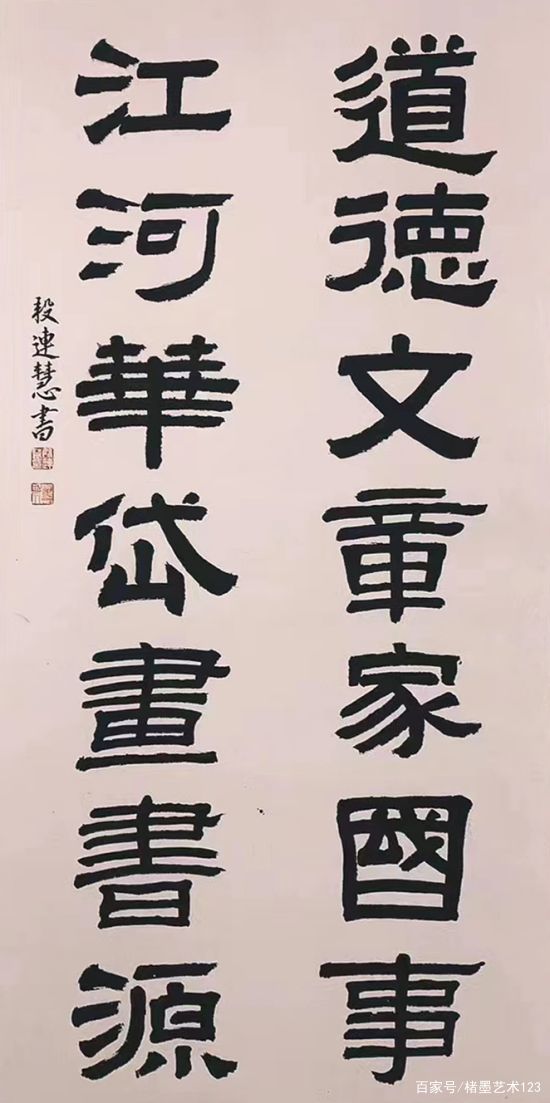 道德文章家國事
江河華岱畫書源
段連慧書
百家号/楮墨艺术123